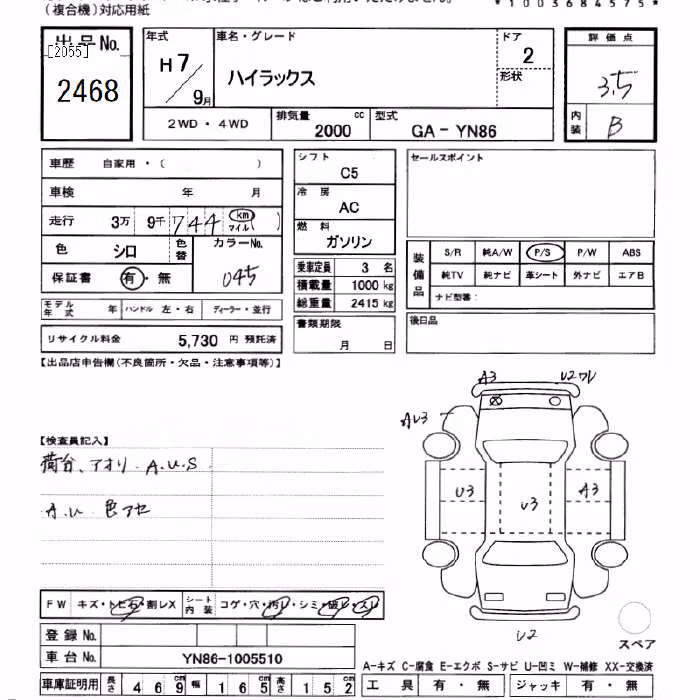 (複合機)対応用紙
*1003684575*
出品No.
[2055]
2468
年式
H7/9月
車名・グレード
ハイラックス
ドア
2
形状
評価点
3.5
内装
B
2WD・4WD
排気量
2000 cc
型式
GA-YN86
車歴 自家用・( )
車検 年 月
走行 3万 9千 744 km マイル( )
色 シロ 色替
カラーNo.
045
保証書 有・無
モデル年式 年 ハンドル 左・右 ディーラー・並行
リサイクル料金 5,730 円 預託済
シフト
C5
冷房
AC
燃料
ガソリン
乗車定員 3 名
積載量 1000 kg
総重量 2415 kg
書類期限
月 日
セールスポイント
装備品
S/R 純A/W P/S P/W ABS
純TV 純ナビ 革シート 外ナビ エアB
ナビ型番:
後日品
【出品店申告欄(不良箇所・欠品・注意事項等)】
【検査員記入】
荷台、アオリ A.U.S
A.U 色アセ
A3
U2ワレ
AU3
U3
U3
A3
U2
スペア
FW キズ・トビ石・割レX
シート内装 コゲ・穴・汚レ・シミ・破レ・スレ
登録No.
車台No. YN86-1005510
車庫証明用 長さ 469 cm 幅 165 cm 高さ 152 cm
A-キズ C-腐食 E-エクボ S-サビ U-凹ミ W-補修 XX-交換済
工具 有・無 ジャッキ 有・無